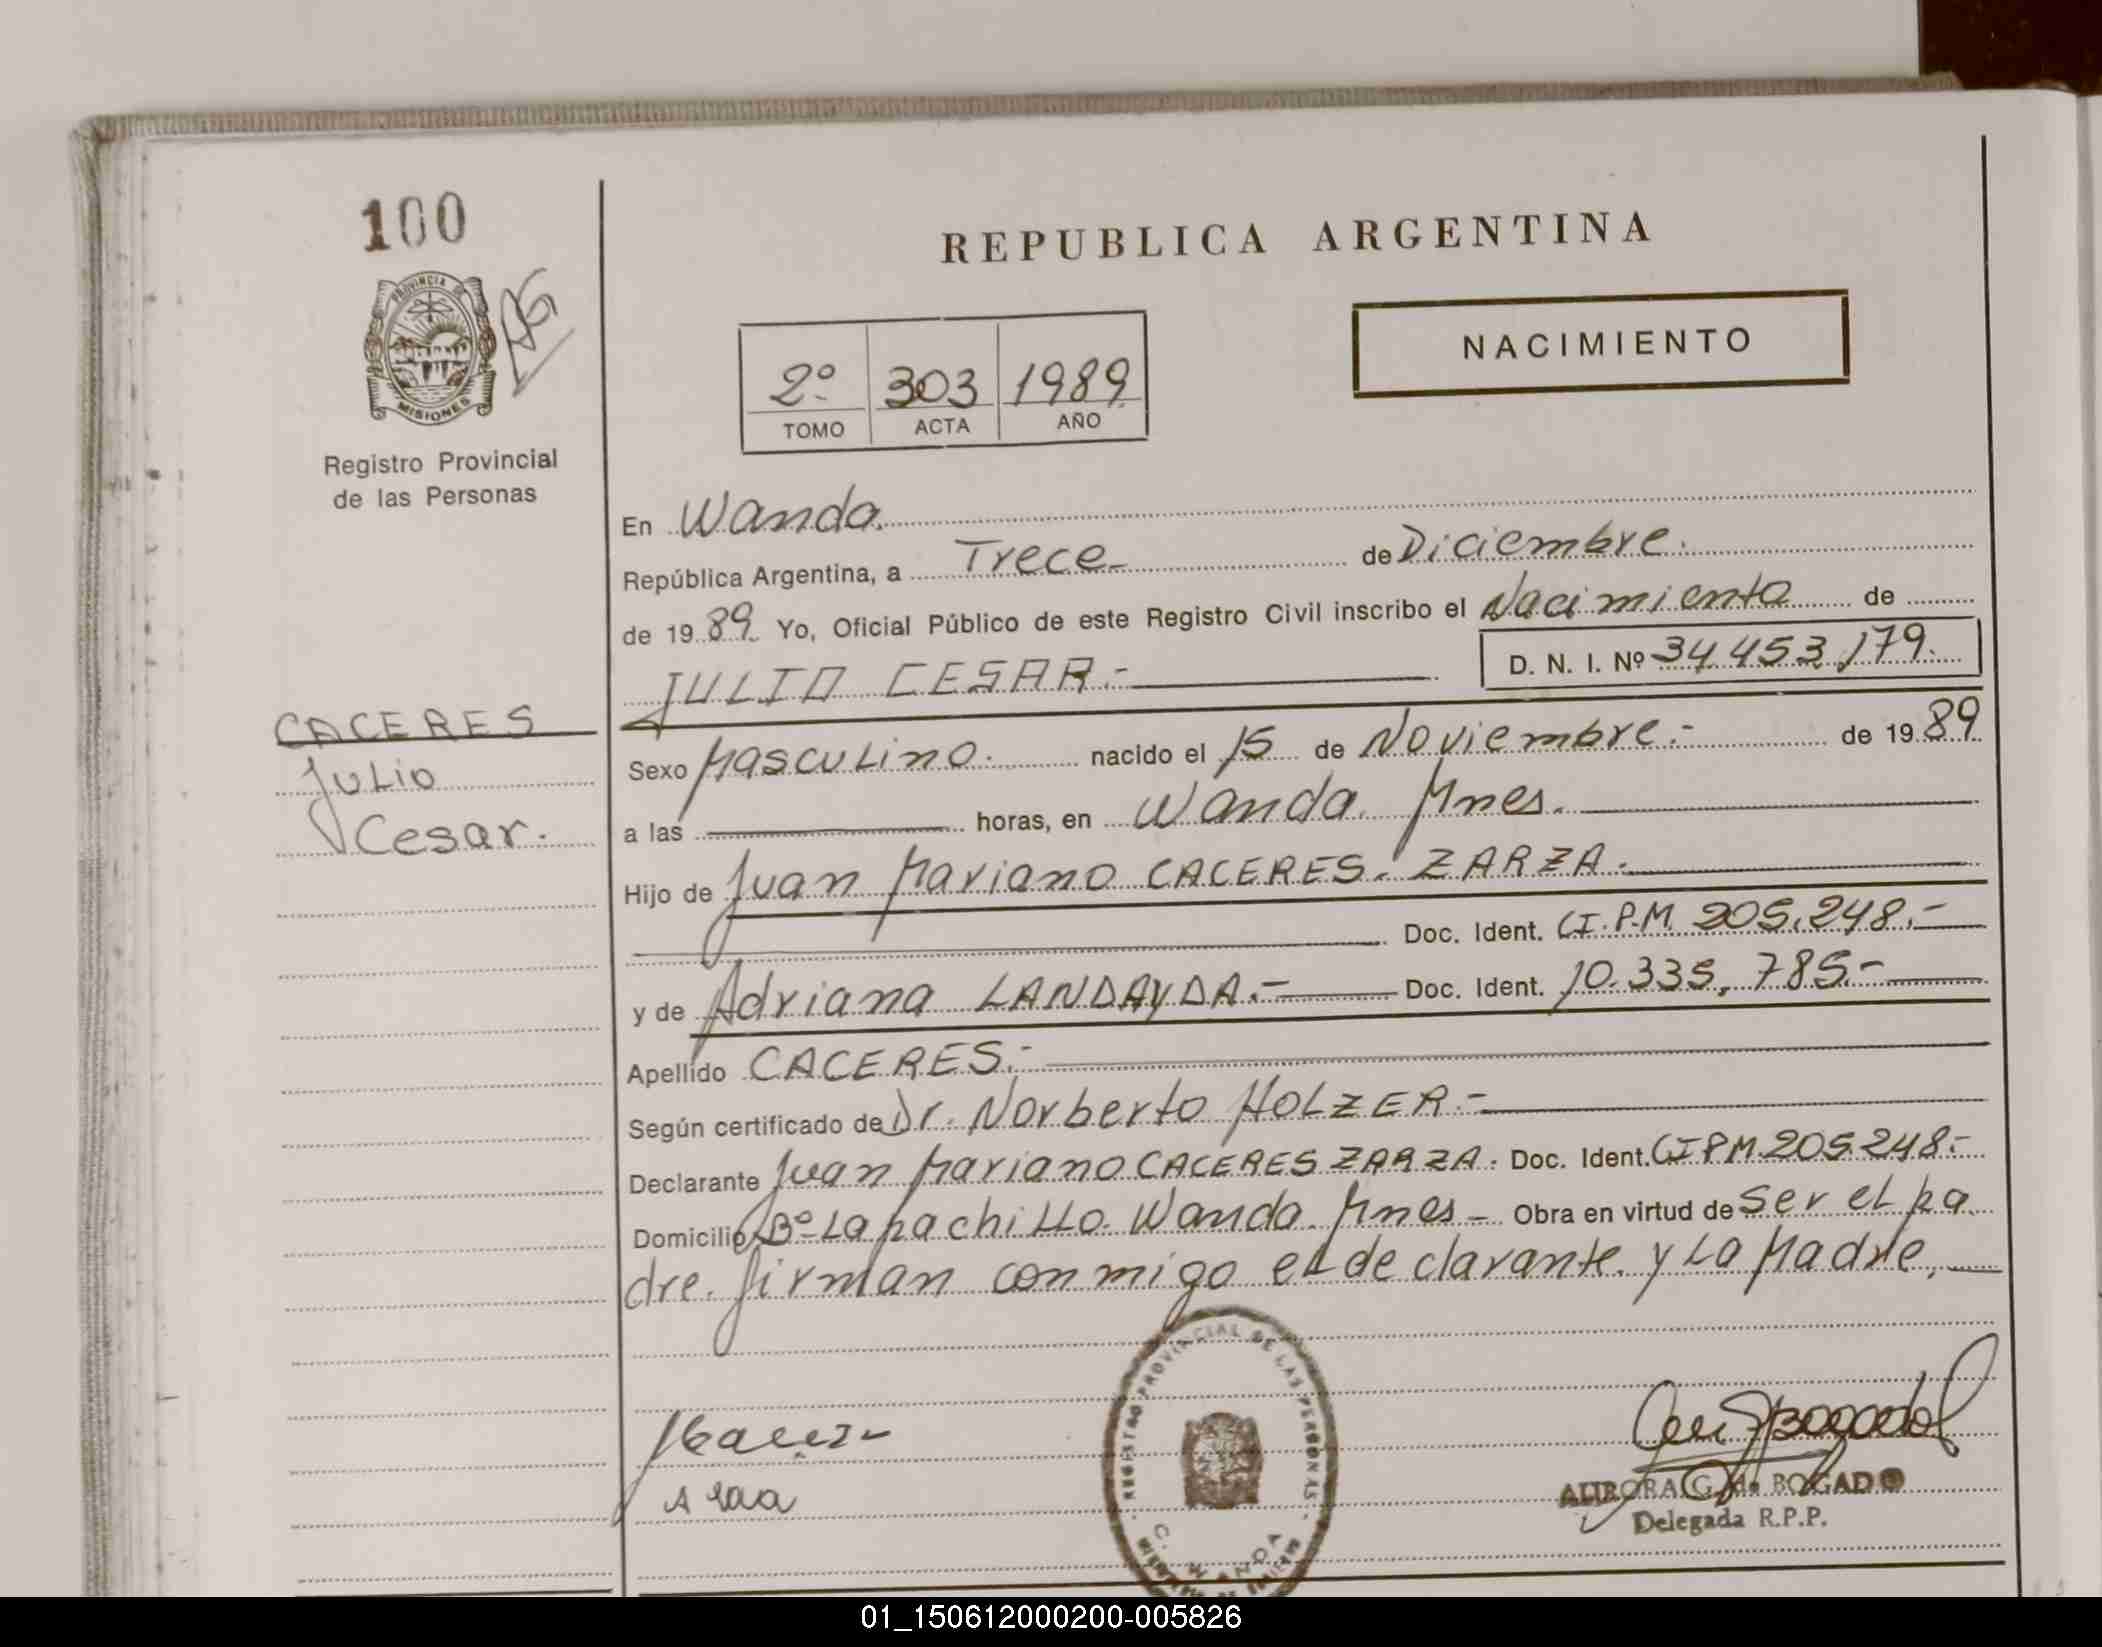 100
REPUBLICA ARGENTINA
PROVINCIA DE
MISIONES
NACIMIENTO
2º 303 1989
TOMO ACTA AÑO
Registro Provincial
de las Personas
En Wanda.
República Argentina, a Trece de Diciembre.
de 1989. Yo, Oficial Público de este Registro Civil inscribo el Nacimiento de
JULIO CESAR.- D. N. I. Nº 34.453.179.
CACERES
Julio
Cesar.
Sexo Masculino. nacido el 15 de Noviembre.- de 1989
a las horas, en Wanda. Mnes.
Hijo de Juan Mariano CACERES. ZARZA.
Doc. Ident. C.I.P.M. 205.248.-
y de Adriana LANDAYDA.- Doc. Ident. 10.335.785.-
Apellido CACERES.-
Según certificado de Dr. Norberto HOLZER.-
Declarante Juan Mariano CACERES ZARZA. Doc. Ident. CIPM.205.248.-
Domicilio Bº Lapachillo. Wanda. Mnes - Obra en virtud de Ser el pa
dre. firman conmigo el declarante. y La Madre.
REGISTRO PROVINCIAL DE LAS PERSONAS
WANDA
AURORA G. de BOGADO
Delegada R.P.P.
01_150612000200-005826